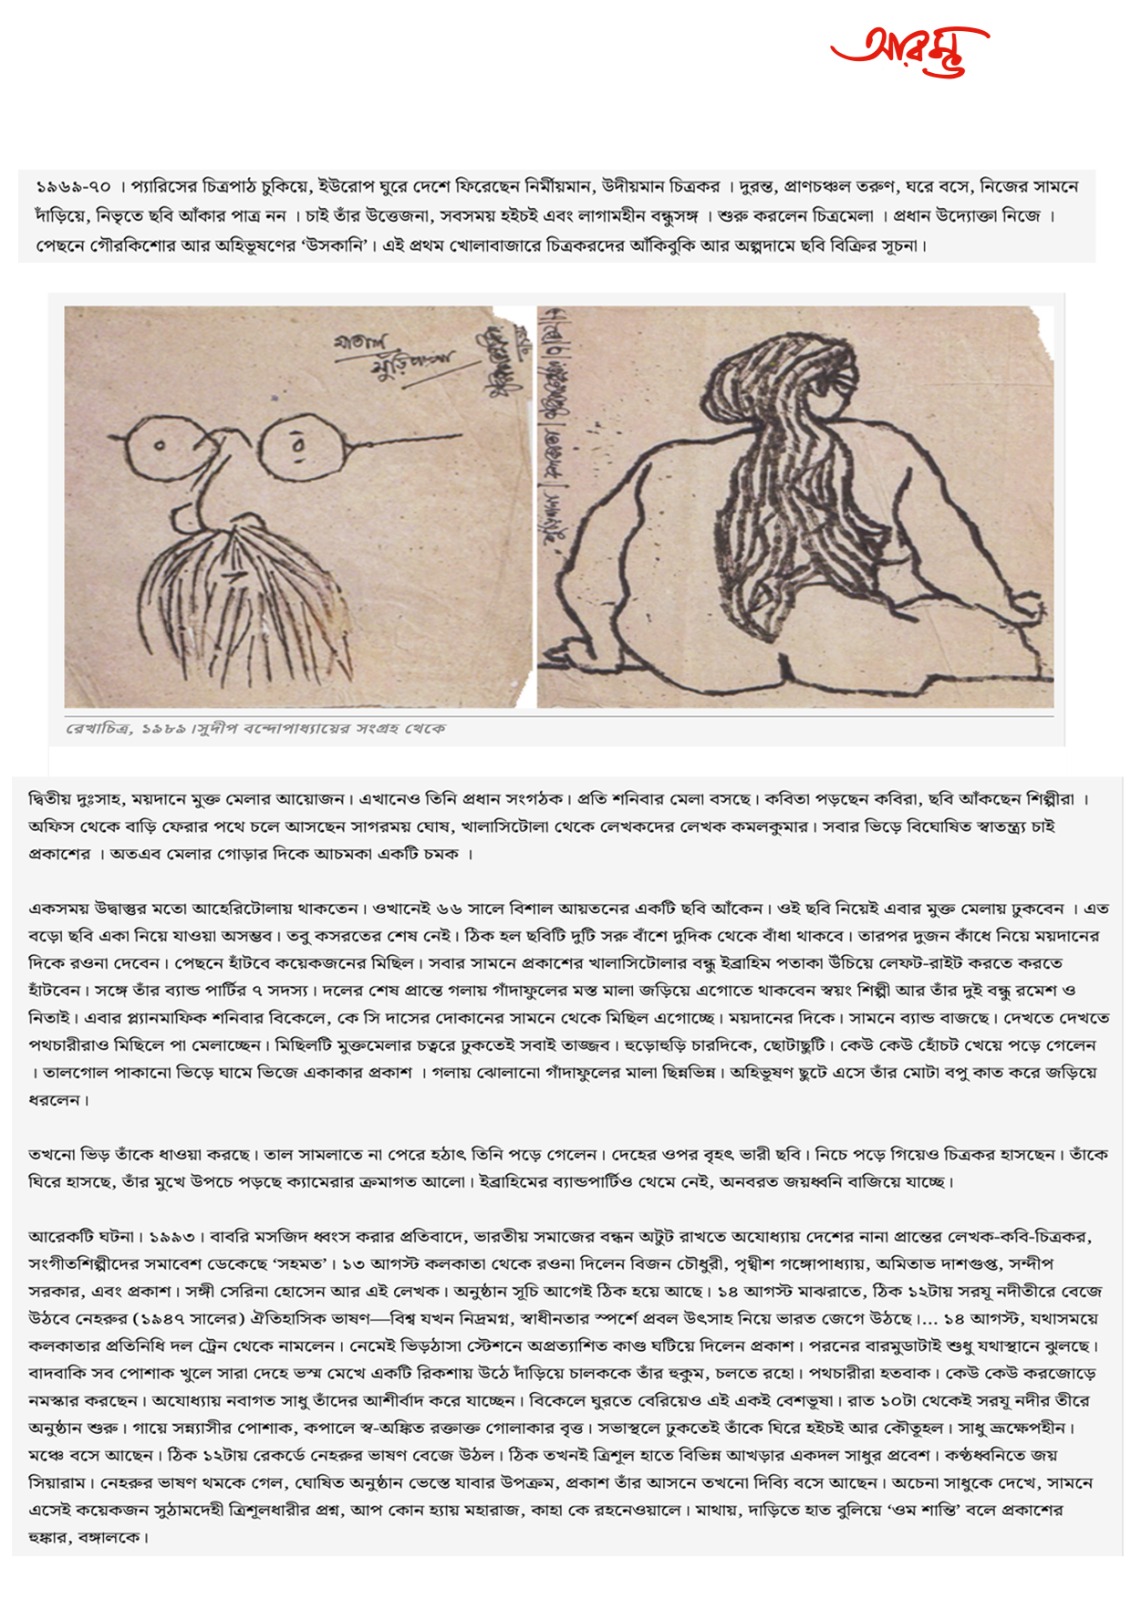 আরম্ভ
১৯৬৯-৭০ । প্যারিসের চিত্রপাঠ চুকিয়ে, ইউরোপ ঘুরে দেশে ফিরেছেন নির্মীয়মান, উদীয়মান চিত্রকর । দুরন্ত, প্রাণচঞ্চল তরুণ, ঘরে বসে, নিজের সামনে
দাঁড়িয়ে, নিভৃতে ছবি আঁকার পাত্র নন । চাই তাঁর উত্তেজনা, সবসময় হইচই এবং লাগামহীন বন্ধুসঙ্গ । শুরু করলেন চিত্রমেলা । প্রধান উদ্যোক্তা নিজে ।
পেছনে গৌরকিশোর আর অহিভূষণের ‘উসকানি’। এই প্রথম খোলাবাজারে চিত্রকরদের আঁকিবুকি আর অল্পদামে ছবি বিক্রির সূচনা।
মাতাল
রেখাচিত্র, ১৯৮৯।সুদীপ বন্দোপাধ্যায়ের সংগ্রহ থেকে
দ্বিতীয় দুঃসাহ, ময়দানে মুক্ত মেলার আয়োজন। এখানেও তিনি প্রধান সংগঠক। প্রতি শনিবার মেলা বসছে। কবিতা পড়ছেন কবিরা, ছবি আঁকছেন শিল্পীরা ।
অফিস থেকে বাড়ি ফেরার পথে চলে আসছেন সাগরময় ঘোষ, খালাসিটোলা থেকে লেখকদের লেখক কমলকুমার। সবার ভিড়ে বিঘোষিত স্বাতন্ত্র্য চাই
প্রকাশের । অতএব মেলার গোড়ার দিকে আচমকা একটি চমক ।
একসময় উদ্বাস্তুর মতো আহেরিটোলায় থাকতেন। ওখানেই ৬৬ সালে বিশাল আয়তনের একটি ছবি আঁকেন। ওই ছবি নিয়েই এবার মুক্ত মেলায় ঢুকবেন । এত
বড়ো ছবি একা নিয়ে যাওয়া অসম্ভব। তবু কসরতের শেষ নেই। ঠিক হল ছবিটি দুটি সরু বাঁশে দুদিক থেকে বাঁধা থাকবে। তারপর দুজন কাঁধে নিয়ে ময়দানের
দিকে রওনা দেবেন। পেছনে হাঁটবে কয়েকজনের মিছিল। সবার সামনে প্রকাশের খালাসিটোলার বন্ধু ইব্রাহিম পতাকা উঁচিয়ে লেফট-রাইট করতে করতে
হাঁটবেন। সঙ্গে তাঁর ব্যান্ড পার্টির ৭ সদস্য। দলের শেষ প্রান্তে গলায় গাঁদাফুলের মস্ত মালা জড়িয়ে এগোতে থাকবেন স্বয়ং শিল্পী আর তাঁর দুই বন্ধু রমেশ ও
নিতাই। এবার প্ল্যানমাফিক শনিবার বিকেলে, কে সি দাসের দোকানের সামনে থেকে মিছিল এগোচ্ছে। ময়দানের দিকে। সামনে ব্যান্ড বাজছে। দেখতে দেখতে
পথচারীরাও মিছিলে পা মেলাচ্ছেন। মিছিলটি মুক্তমেলার চত্বরে ঢুকতেই সবাই তাজ্জব। হুড়োহুড়ি চারদিকে, ছোটাছুটি। কেউ কেউ হোঁচট খেয়ে পড়ে গেলেন
। তালগোল পাকানো ভিড়ে ঘামে ভিজে একাকার প্রকাশ । গলায় ঝোলানো গাঁদাফুলের মালা ছিন্নভিন্ন। অহিভূষণ ছুটে এসে তাঁর মোটা বপু কাত করে জড়িয়ে
ধরলেন।
তখনো ভিড় তাঁকে ধাওয়া করছে। তাল সামলাতে না পেরে হঠাৎ তিনি পড়ে গেলেন। দেহের ওপর বৃহৎ ভারী ছবি। নিচে পড়ে গিয়েও চিত্রকর হাসছেন। তাঁকে
ঘিরে হাসছে, তাঁর মুখে উপচে পড়ছে ক্যামেরার ক্রমাগত আলো। ইব্রাহিমের ব্যান্ডপার্টিও থেমে নেই, অনবরত জয়ধ্বনি বাজিয়ে যাচ্ছে।
আরেকটি ঘটনা। ১৯৯৩। বাবরি মসজিদ ধ্বংস করার প্রতিবাদে, ভারতীয় সমাজের বন্ধন অটুট রাখতে অযোধ্যায় দেশের নানা প্রান্তের লেখক-কবি-চিত্রকর,
সংগীতশিল্পীদের সমাবেশ ডেকেছে ‘সহমত’। ১৩ আগস্ট কলকাতা থেকে রওনা দিলেন বিজন চৌধুরী, পৃথ্বীশ গঙ্গোপাধ্যায়, অমিতাভ দাশগুপ্ত, সন্দীপ
সরকার, এবং প্রকাশ। সঙ্গী সেরিনা হোসেন আর এই লেখক। অনুষ্ঠান সূচি আগেই ঠিক হয়ে আছে। ১৪ আগস্ট মাঝরাতে, ঠিক ১২টায় সরযূ নদীতীরে বেজে
উঠবে নেহরুর (১৯৪৭ সালের) ঐতিহাসিক ভাষণ—বিশ্ব যখন নিদ্রমগ্ন, স্বাধীনতার স্পর্শে প্রবল উৎসাহ নিয়ে ভারত জেগে উঠছে।... ১৪ আগস্ট, যথাসময়ে
কলকাতার প্রতিনিধি দল ট্রেন থেকে নামলেন। নেমেই ভিড়ঠাসা স্টেশনে অপ্রত্যাশিত কাণ্ড ঘটিয়ে দিলেন প্রকাশ। পরনের বারমুডাটাই শুধু যথাস্থানে ঝুলছে।
বাদবাকি সব পোশাক খুলে সারা দেহে ভস্ম মেখে একটি রিকশায় উঠে দাঁড়িয়ে চালককে তাঁর হুকুম, চলতে রহো। পথচারীরা হতবাক। কেউ কেউ করজোড়ে
নমস্কার করছেন। অযোধ্যায় নবাগত সাধু তাঁদের আশীর্বাদ করে যাচ্ছেন। বিকেলে ঘুরতে বেরিয়েও এই একই বেশভূষা। রাত ১০টা থেকেই সরযূ নদীর তীরে
অনুষ্ঠান শুরু। গায়ে সন্ন্যাসীর পোশাক, কপালে স্ব-অঙ্কিত রক্তাক্ত গোলাকার বৃত্ত। সভাস্থলে ঢুকতেই তাঁকে ঘিরে হইচই আর কৌতূহল। সাধু ভ্রূক্ষেপহীন।
মঞ্চে বসে আছেন। ঠিক ১২টায় রেকর্ডে নেহরুর ভাষণ বেজে উঠল। ঠিক তখনই ত্রিশূল হাতে বিভিন্ন আখড়ার একদল সাধুর প্রবেশ। কণ্ঠধ্বনিতে জয়
সিয়ারাম। নেহরুর ভাষণ থমকে গেল, ঘোষিত অনুষ্ঠান ভেস্তে যাবার উপক্রম, প্রকাশ তাঁর আসনে তখনো দিব্যি বসে আছেন। অচেনা সাধুকে দেখে, সামনে
এসেই কয়েকজন সুঠামদেহী ত্রিশূলধারীর প্রশ্ন, আপ কোন হ্যায় মহারাজ, কাহা কে রহনেওয়ালে। মাথায়, দাড়িতে হাত বুলিয়ে ‘ওম শান্তি’ বলে প্রকাশের
হুঙ্কার, বঙ্গালকে।